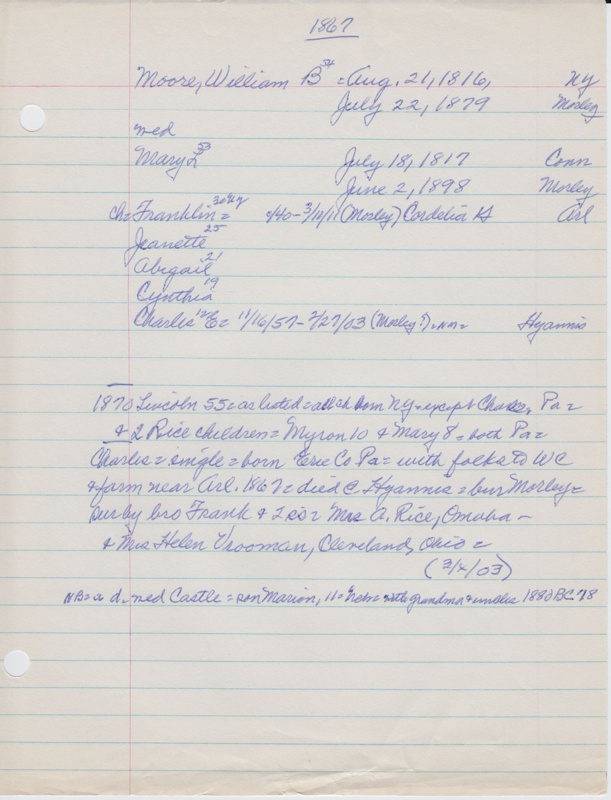 1867
Moore, William B 54 = Aug. 21, 1816, NY
July 22, 1879 Morley
med
Mary L 53 July 18, 1817 Conn
June 2, 1898 Morley
ch = Franklin = 30 c/40 - 3/11/11 (Morley) Cordelia H Arl
Jeanette 25
Abigail 21
Cynthia 19
Charles E 12 = 11/16/57 - 2/27/03 (Morley?) = nm = Hyannis
1870 Lincoln 55 = as listed = all ch born NY = except Charles, Pa =
& 2 Rice children = Myron 10 & Mary 8 = both Pa =
Charles = single = born Erie Co Pa = with folks to WC
& farm near Arl. 1867 = died @ Hyannis = bur Morley =
sur by bro Frank & 2 sis = Mrs A. Rice, Omaha -
& Mrs Helen Vrooman, Cleveland, Ohio =
(3/4/03)
NB = a d. med Castle = son Marion, 11 = Nebr = with grandma & uncles 1880 BC 78